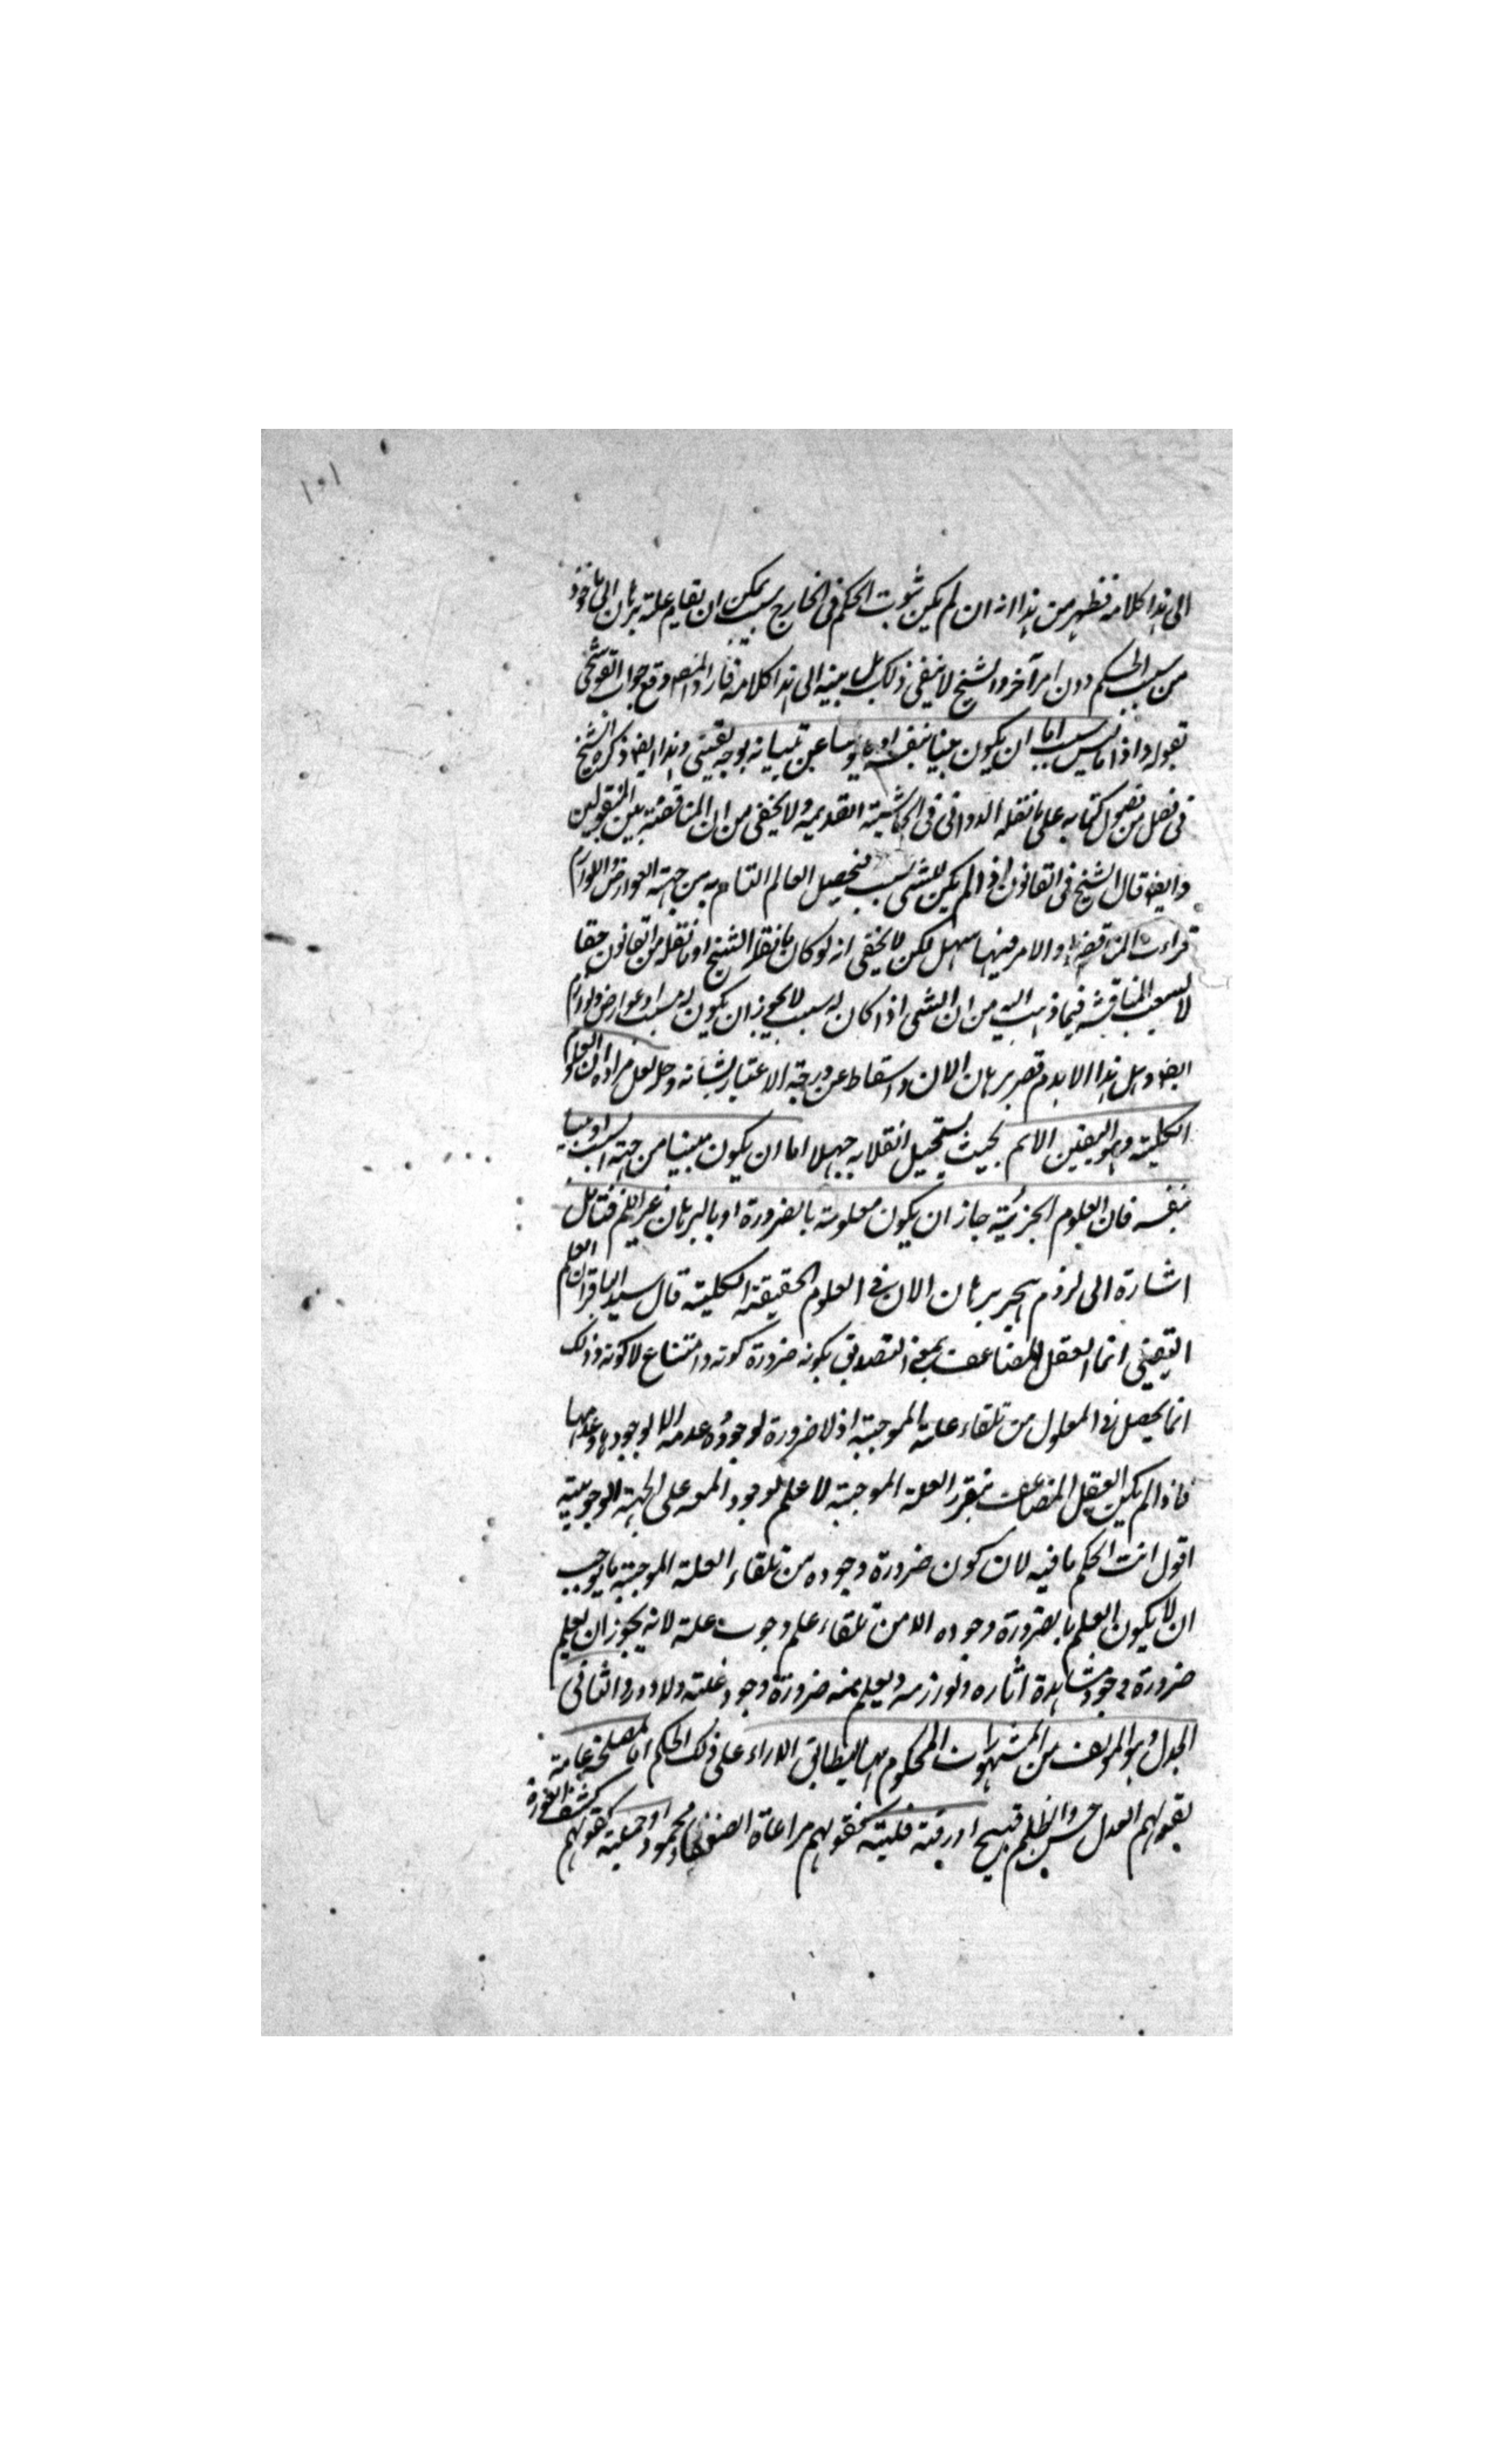 ١٠١
الى هذا كلامه فظهر من هذا انه ان لم يكن ثبوت الحكم فى الخارج سبب يمكن ان يقام عليه برهان الى ماخوذ
من سبب الحكم دون امر آخر والشيخ لا ينفى ذلك بل يبينه الى هذا كلامه فاراد المصـ وقع جواب القوشجى
بقوله واذا ما ليس له سبب اما ان يكون بينا بنفسه او مايوسا عن تبيانه بوجه يقينى وهذا ايضا ذكره الشيخ
فى فصل من فصول كتابه على ما نقله الدوانى فى الحاشية القديمه ولا يخفى من ان المناقضة بين المنقولين
وايضا قال الشيخ فى القانون اذا لم يكن للشى سبب فتحصيل العالم التام به من جهة العوارض واللوازم
المناقضه والامر فيها سهل لكن لا يخفى انه لو كان ما نقله الشيخ او ما نقله من القانون حقا
المناقشة فيما ذهب اليه من ان الشى اذا كان له سبب لا يجوز ان يكون له مسبب او عوارض ولوازم
ايضا وهل هذا الا بدم قصر برهان الان واسقاط عن درجة الاعتبار بشانه وحل لعل مراده ان العلوم
الكلية وهو اليقين الاتم بحيث يستحيل انقلابه جهلا اما ان يكون مبينا من جهة السبب او مبينا
بنفسه فان العلوم الجزئية جاز ان يكون معلومة بالضرورة او بالبرهان غير اللم فتامل
اشارة الى لزوم هجر برهان الان فى العلوم الحقيقة الكلية قال سيد الباقر ان العلم
اليقينى انما العقل المضاعف بمعنى التصديق بكونه ضرورة كونه وامتناع لا كونه وذلك
انما يحصل فى المعلول من تلقاء علته الموجبة اذ لا ضرورة لوجوده وعدمه الا لوجودها وعدمها
فاذا لم يكن العقل المضاعف بتقرر العلة الموجبة لا علم لوجود المعـ على الجهة الوجوبية
اقول انت الحكم ما فيه لان كون ضرورة وجوده من تلقاء العلة الموجبة ما يوجب
ان لا يكون العلم بالضرورة وجوده الا من تلقاء علم وجوب علته لانه يجوز ان يعلم
ضرورة وجود مشاهدة اثاره ولوازمه ويعلم منه ضرورة وجود علته ولا دور والثانى
الجدل وهو المولف من المشهورات المحكوم بها لتطابق الاراء على ذلك الحكم اما لمصلحة عامة
بقولهم العدل حسن والظلم قبيح او رقة قلبية كقولهم مراعاة الضعفاء محمود او حمية كقولهم
كشف العورة